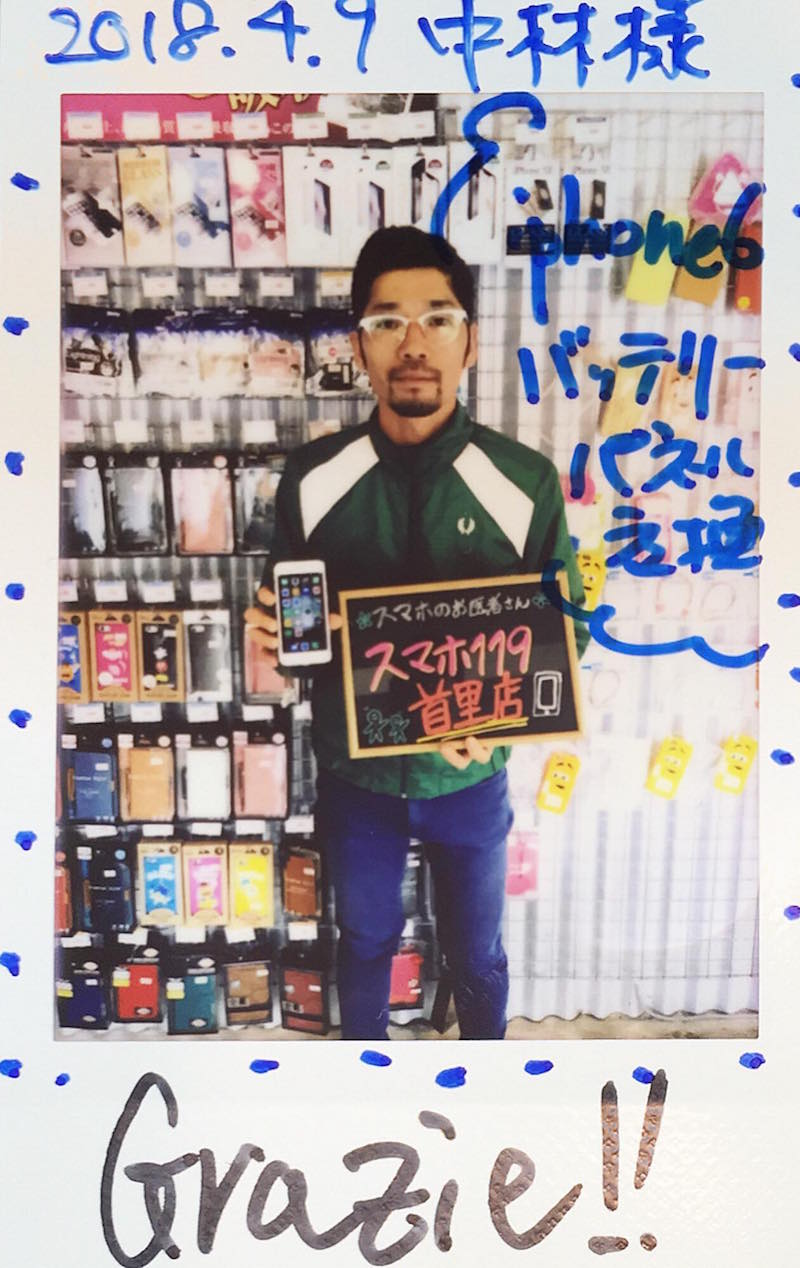 2018.4.9 中林様
iphone6
バッテリー
パネル
交換
スマホのお医者さん
スマホ119
首里店
Grazie!!